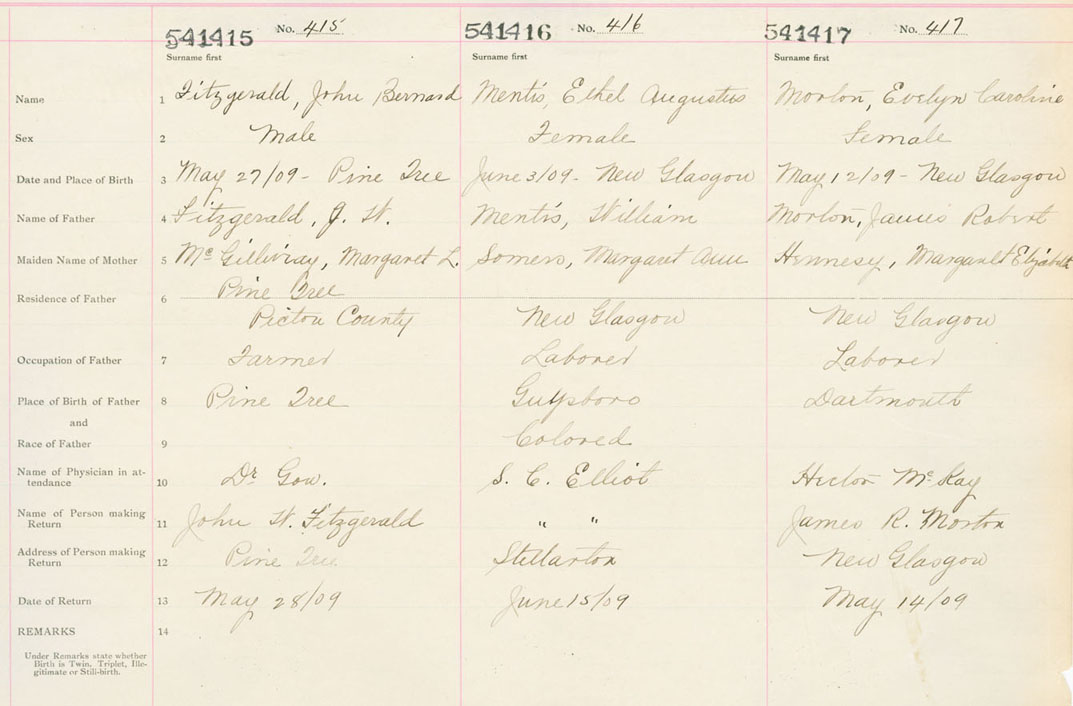 541415 No. 415 541416 No. 416 541417 No. 417
Surname first Surname first Surname first
Name 1 Fitzgerald, John Bernard Mentis, Ethel Augustus Morton, Evelyn Caroline
Sex 2 Male Female Female
Date and Place of Birth 3 May 27/09 - Pine Tree June 3/09 - New Glasgow May 12/09 - New Glasgow
Name of Father 4 Fitzgerald, J. W. Mentis, William Morton, James Robert
Maiden Name of Mother 5 McGillivray, Margaret L. Somers, Margaret Ann Hennesy, Margaret Elizabeth
Pine Tree
Residence of Father 6
Pictou County New Glasgow New Glasgow
Occupation of Father 7 Farmer Laborer Laborer
Place of Birth of Father 8 Pine Tree Guysboro Dartmouth
and
Race of Father 9 Colored
Name of Physician in at-
tendance 10 Dr Gow. S. C. Elliot Hector McKay
Name of Person making
Return 11 John W. Fitzgerald " " James R. Morton
Address of Person making
Return 12 Pine Tree Stellarton New Glasgow
Date of Return 13 May 28/09 June 15/09 May 14/09
REMARKS 14
Under Remarks state whether
Birth is Twin, Triplet, Ille-
gitimate or Still-birth.